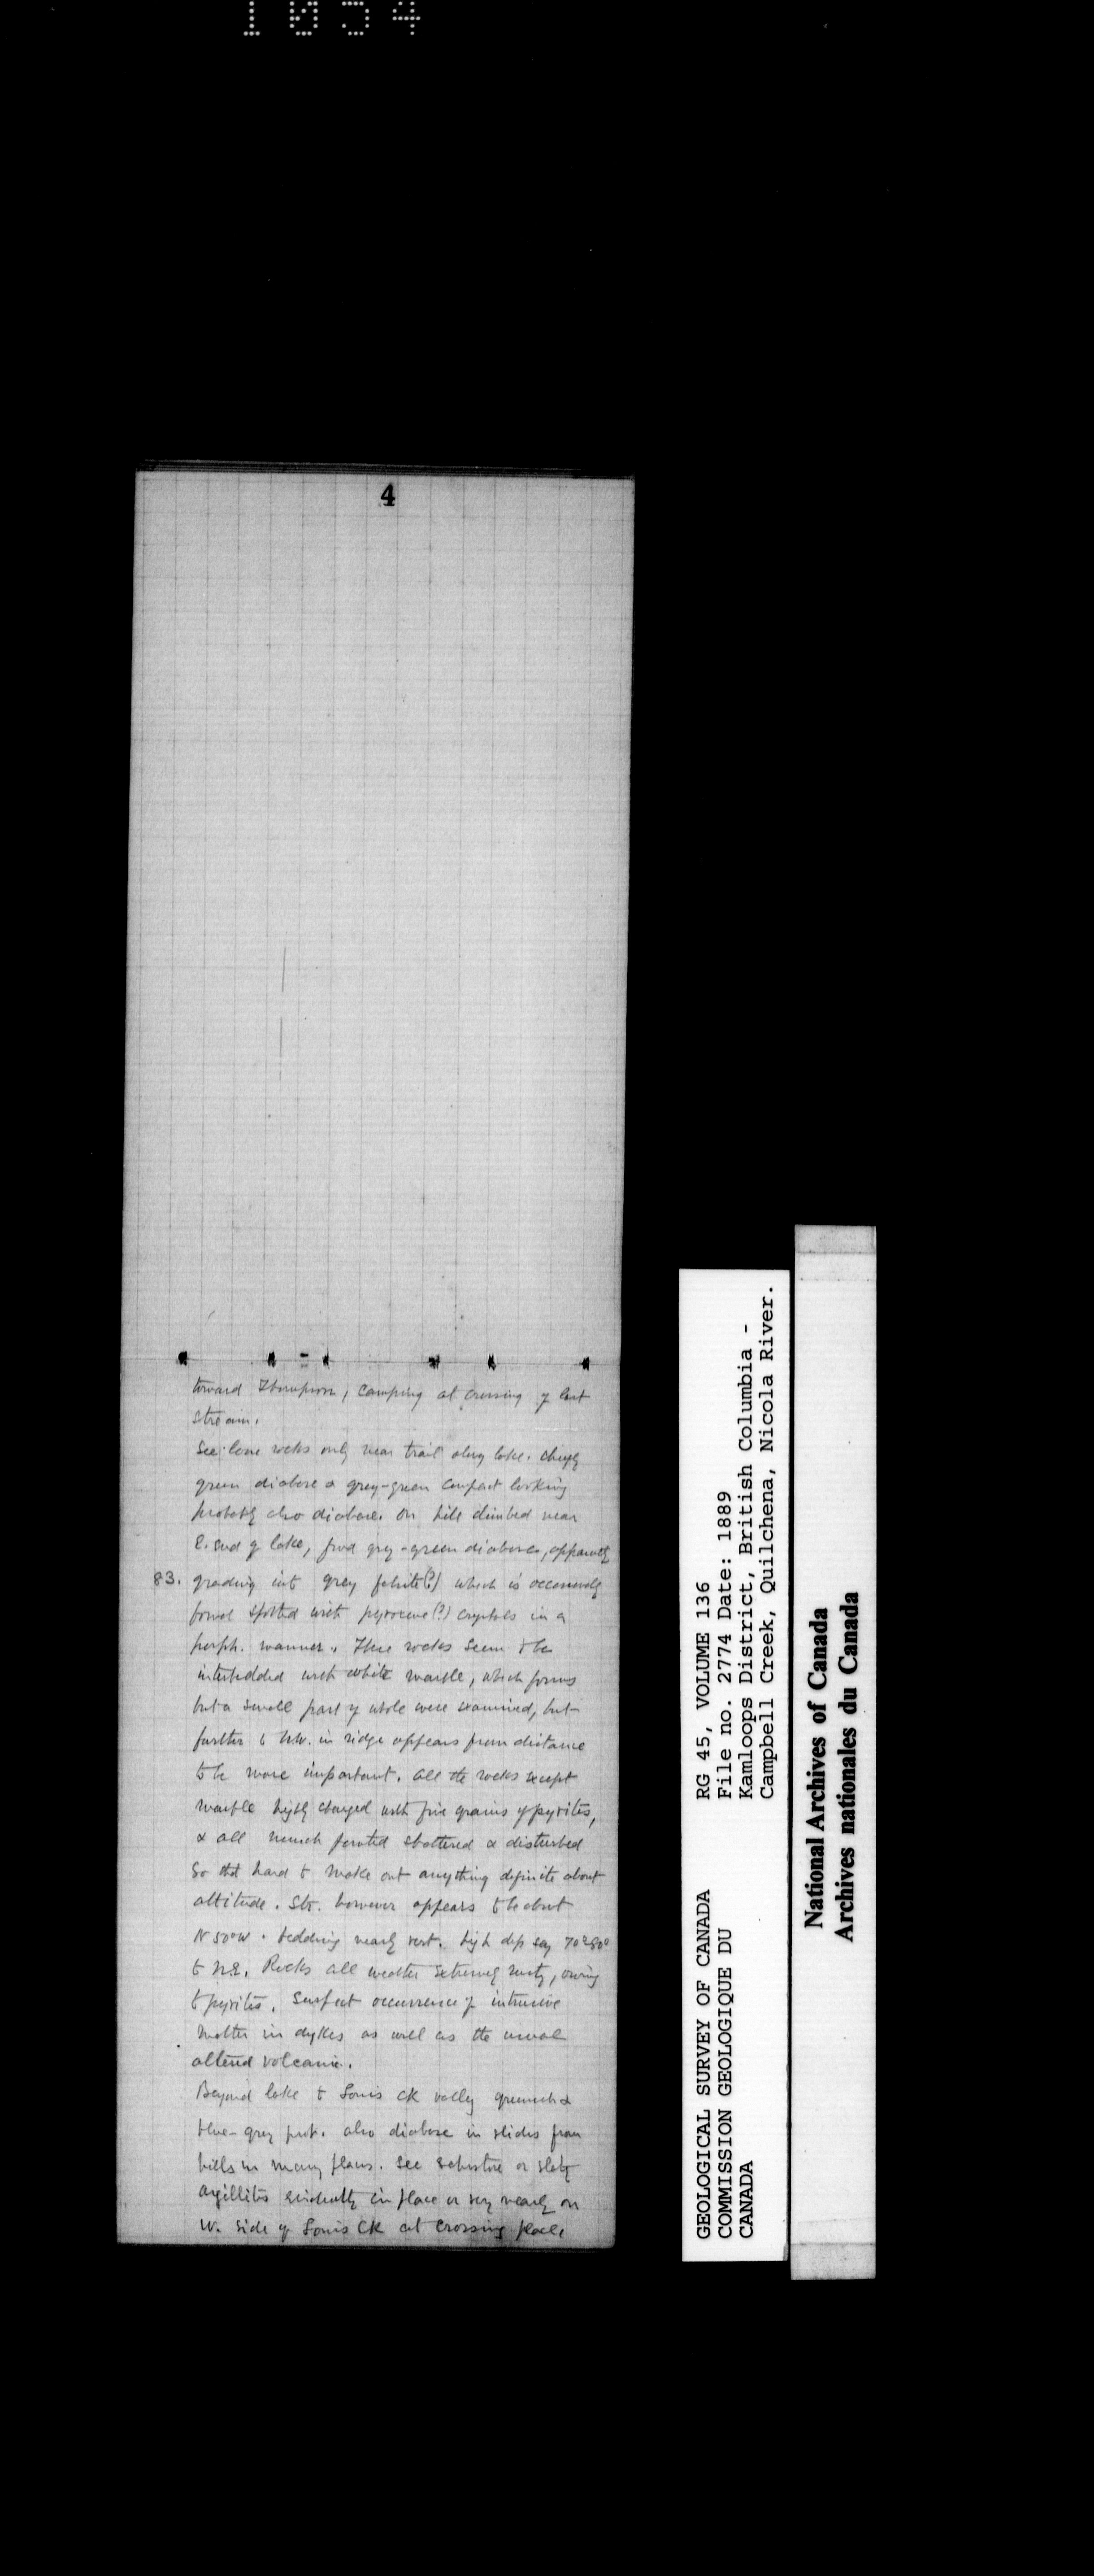 1054
4
toward Thompson, camping at crossing of last
stream.
See loose rocks only near trail along lake. Chiefly
green diabase & grey-green compact looking
probably also diabase. On hill climbed near
E. end of lake, find grey-green diabase, apparently
83. grading into grey felsite(?) which is occasionally
found spotted with pyroxene(?) crystals in a
porph. manner. These rocks seem to be
interbedded with white marble, which forms
but a small part of whole were examined, but
further to NW. in ridge appears from distance
to be more important. All the rocks except
marble highly charged with fine grains of pyrites,
& all much jointed shattered & disturbed
So that hard to make out anything definite about
attitude. Str. however appears to be about
N 50° W. bedding nearly vert. high dip say 70° 80°
to N.E. Rocks all weather extremely rusty, owing
to pyrites. Suspect occurrence of intrusive
matter in dykes as well as the usual
altered volcanic.
Beyond lake to Louis Ck valley greenish &
blue-grey prob. also diabase in slides from
hills in many places. See schistose or slaty
argillites evidently in place or very nearly on
W. side of Louis Ck at crossing place
GEOLOGICAL SURVEY OF CANADA
COMMISSION GEOLOGIQUE DU
CANADA
RG 45, VOLUME 136
File no. 2774 Date: 1889
Kamloops District, British Columbia -
Campbell Creek, Quilchena, Nicola River.
National Archives of Canada
Archives nationales du Canada